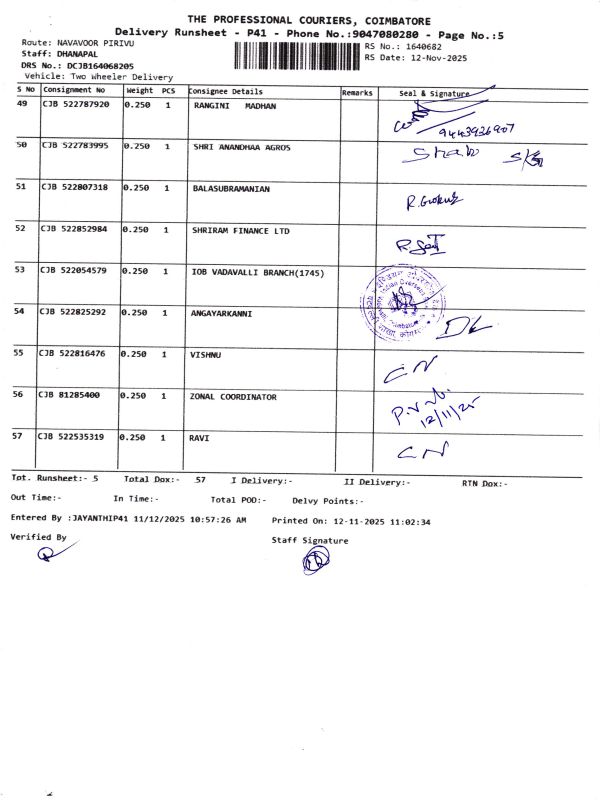 THE PROFESSIONAL COURIERS, COIMBATORE
Delivery Runsheet - P41 - Phone No.:9047080280 - Page No.:5
Route: NAVAVOOR PIRIVU RS No.: 1640682
Staff: DHANAPAL RS Date: 12-Nov-2025
DRS No.: DCJB164068205
Vehicle: Two Wheeler Delivery
S No Consignment No Weight PCS Consignee Details Remarks Seal & Signature
49 CJB 522787920 0.250 1 RANGINI MADHAN
9443936907
50 CJB 522783995 0.250 1 SHRI ANANDHAA AGROS
51 CJB 522807318 0.250 1 BALASUBRAMANIAN
52 CJB 522852984 0.250 1 SHRIRAM FINANCE LTD
53 CJB 522054579 0.250 1 IOB VADAVALLI BRANCH(1745)
54 CJB 522825292 0.250 1 ANGAYARKANNI
55 CJB 522816476 0.250 1 VISHNU CN
56 CJB 81285400 0.250 1 ZONAL COORDINATOR
12/11/25
57 CJB 522535319 0.250 1 RAVI CN
Tot. Runsheet:- 5 Total Dox:- 57 I Delivery:- II Delivery:- RTN Dox:-
Out Time:- In Time:- Total POD:- Delvy Points:-
Entered By :JAYANTHIP41 11/12/2025 10:57:26 AM Printed On: 12-11-2025 11:02:34
Verified By Staff Signature